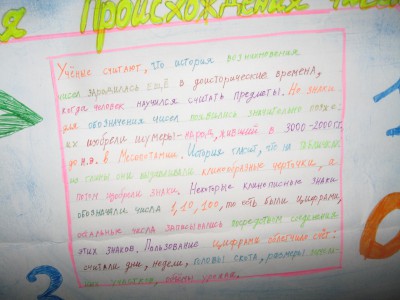 я Происхождения чисел
Учёные считают, что история возникновения
чисел зародилась ещё в доисторические времена,
когда человек научился считать предметы. Но знаки
для обозначения чисел появились значительно позже:
их изобрели шумеры-народ, живший в 3000-2000гг.
до н.э. в Месопотамии. История гласит, что на табличках
из глины они выдавливали клинообразные чёрточки, а
потом изобрели знаки. Некоторые клинописные знаки
обозначали числа 1, 10, 100, то есть были цифрами,
остальные числа записывались посредством соединения
этих знаков. Пользование цифрами облегчило счёт:
считали дни, недели, головы скота, размеры
участков, объёмы урожая.
3
1
0